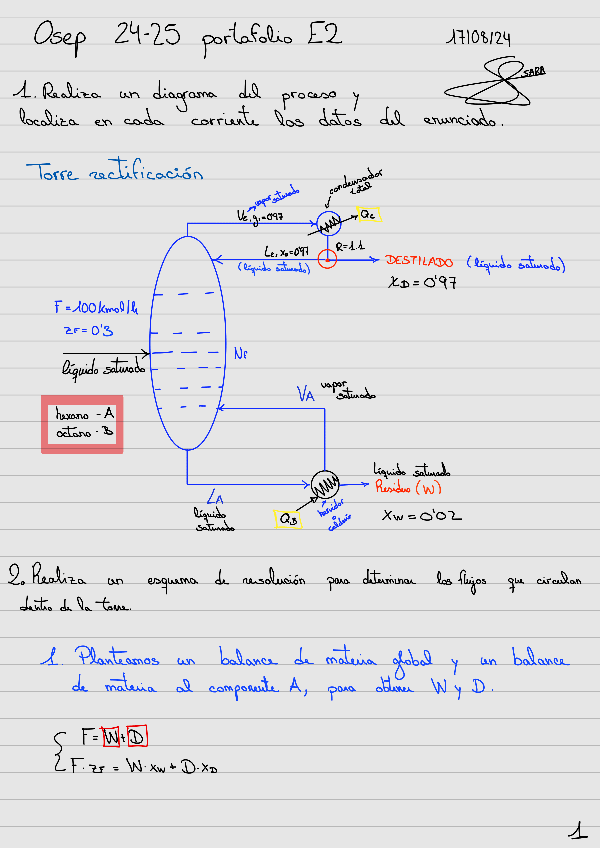 Osep 24-25 portafolio E2
17/08/24
SARA
1. Realiza un diagrama del proceso y
localiza en cada corriente los datos del enunciado.
Torre rectificación
vapor saturado
condensador total
VE, y1=0'97
QC
LE, x0=0'97
R=1.1
(líquido saturado)
DESTILADO (líquido saturado)
XD=0'97
F=100kmol/h
ZF=0'3
líquido saturado
NF
hexano - A
octano - B
VA vapor saturado
LA
líquido saturado
QB
hervidor o calderín
Líquido saturado
Residuo (W)
XW=0'02
2. Realiza un esquema de resolución para determinar los flujos que circulan
dentro de la torre.
1. Planteamos un balance de materia global y un balance
de materia al componente A, para obtener W y D.
F=W+D
F·ZF = W·XW + D·XD
1